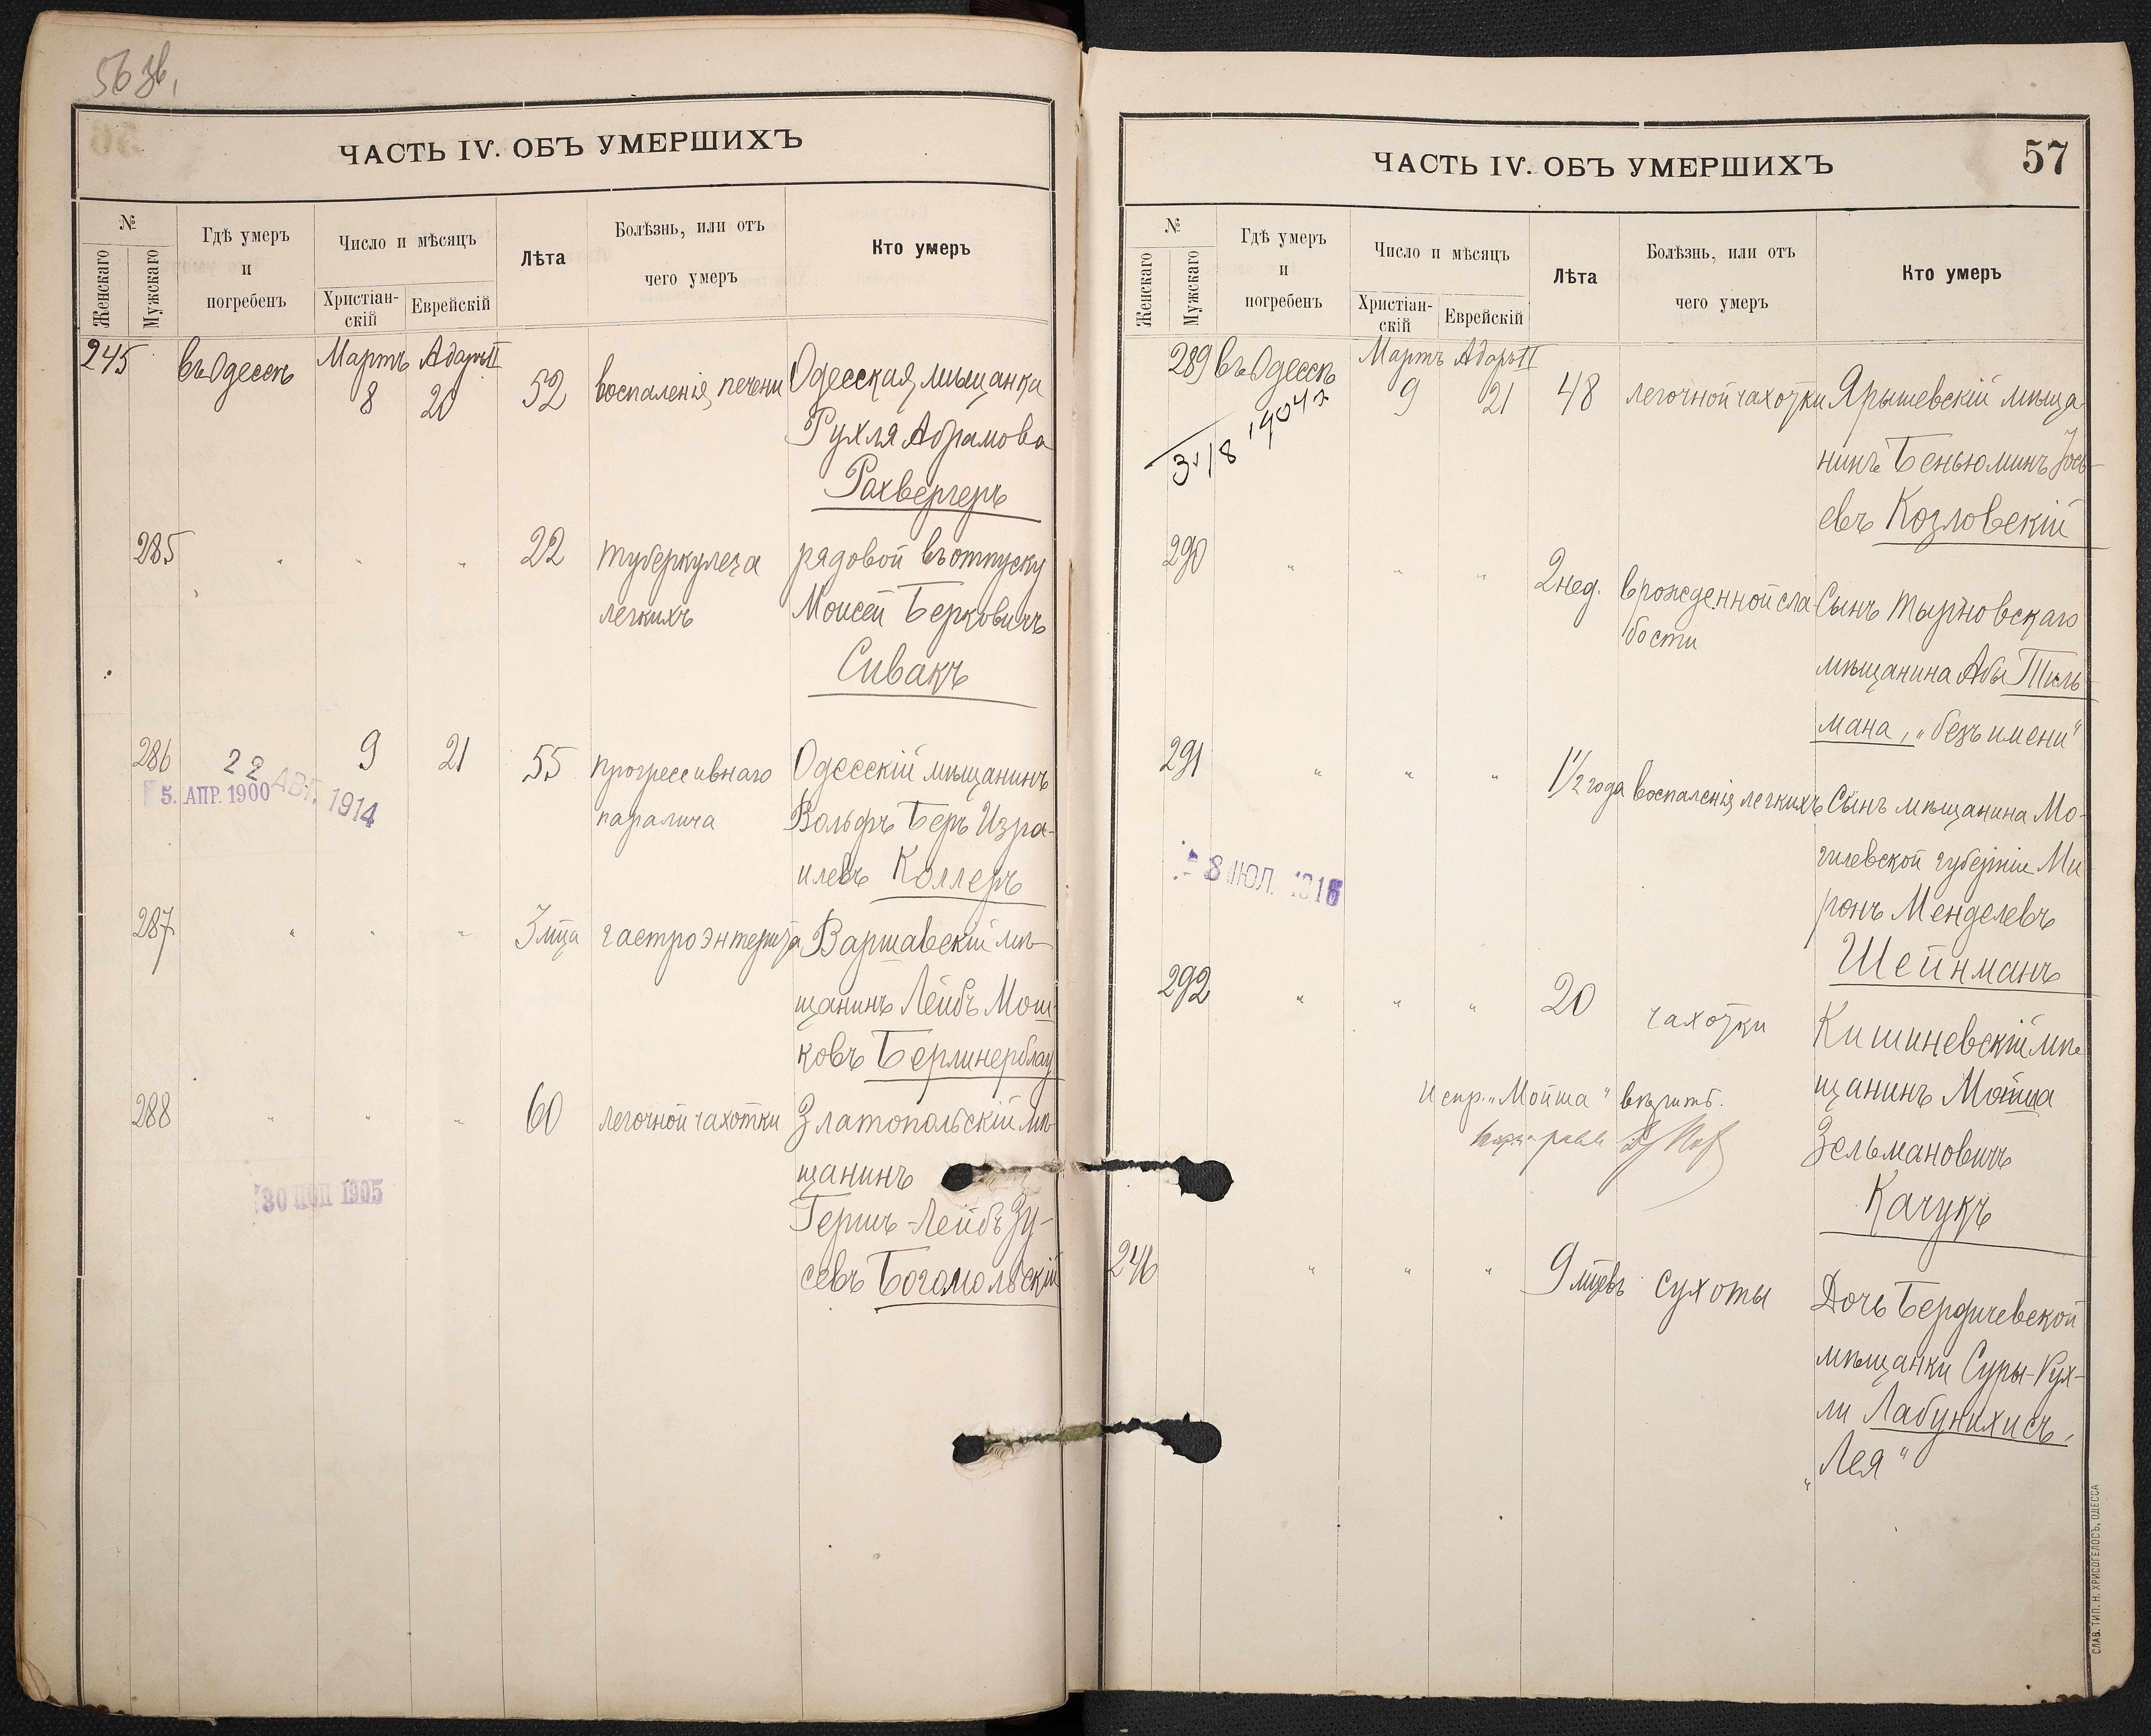 56 зв.
ЧАСТЬ IV. ОБЪ УМЕРШИХЪ
№
Женскаго
Мужскаго
Гдѣ умеръ
и
погребенъ
Число и мѣсяцъ
Христіан-
скій
Еврейскій
Лѣта
Болѣзнь, или отъ
чего умеръ
Кто умеръ
245 въ Одессѣ Мартъ 8 Адаръ II 20 52 воспаленія печени Одесская мѣщанка
Рухля Абрамова
Рахвергеръ
285 " " " 22 туберкулеза рядовой въ отпуску
легкихъ Моисей Берковичъ
Сивакъ
286 9 21 55 прогрессивнаго Одесскій мѣщанинъ
22 АВГ. 1914
5. АПР. 1900
паралича Вольфъ Беръ Изра-
илевъ Коллеръ
287 " " " 3 мца гастроэнтерита Варшавскій мѣ-
щанинъ Лейбъ Мош-
ковъ Берлинерблау
288 " " " 60 легочной чахотки Златопольскій мѣ-
щанинъ
30 1905
Гершъ-Лейбъ Зу-
севъ Богомольскій
57
ЧАСТЬ IV. ОБЪ УМЕРШИХЪ
№
Женскаго
Мужскаго
Гдѣ умеръ
и
погребенъ
Число и мѣсяцъ
Христіан-
скій
Еврейскій
Лѣта
Болѣзнь, или отъ
чего умеръ
Кто умеръ
289 въ Одессѣ Мартъ 9 Адаръ II 21 48 легочной чахотки Ярышевскій мѣща-
нинъ Беньюминъ Іось-
евъ Козловскій
290 " " " 2 нед. врожденной сла- Сынъ Тырновскаго
бости
мѣщанина Абы Тиль-
мана, "безъ имени"
291 " " " 1½ года воспаленія легкихъ Сынъ мѣщанина Мо-
гилевской губерніи Ми-
8 ІЮЛ. 1916
ронъ Менделевъ
Шейнманъ
292 " " " 20 чахотки Кишиневскій мѣ-
щанинъ Мойша
Испр. "Мойша"
Зельмановичъ
Качукъ
246 " " " 9 мцевъ сухоты Дочь Бердичевской
мѣщанки Суры-Рух-
ли Лабунихисъ,
"Лея"
СЛАВ. ТИП. Н. ХРИСОГЕЛОСЪ, ОДЕССА